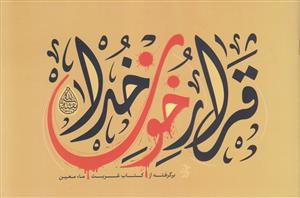 قرار خون خدا
برگرفته از کتاب غربت ماء معین